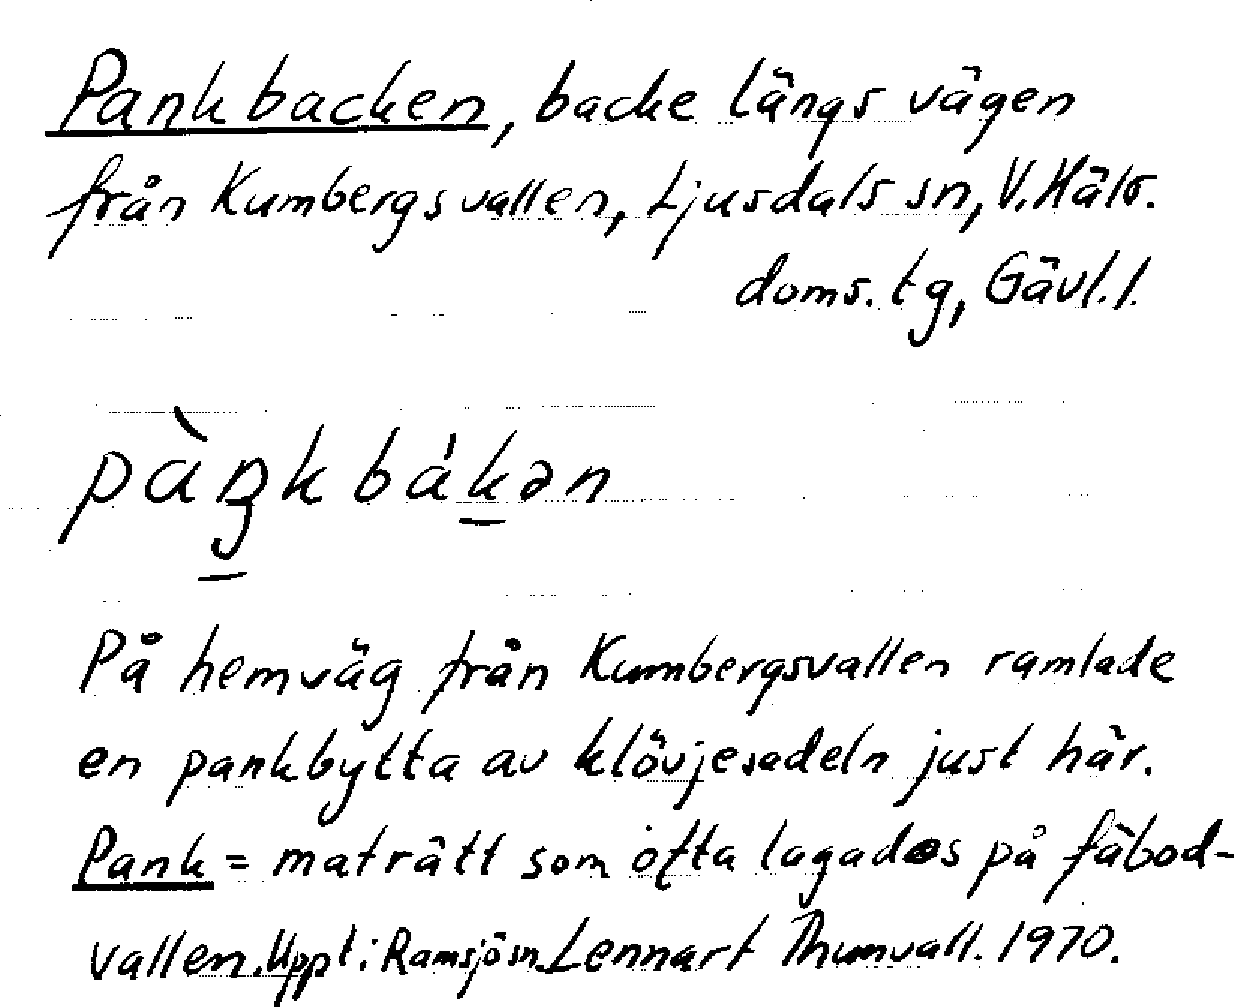 Pankbacken, backe längs vägen
från Kumbergsvallen, Ljusdals sn, V. Häls.
doms. tg, Gävl. l.
pàŋkbákən
På hemväg från Kumbergsvallen ramlade
en pankbytta av klövjesadeln just här.
Pank = maträtt som ofta lagades på fäbod-
vallen. Uppt. i Ramsjö sn. Lennart Thunvall. 1970.